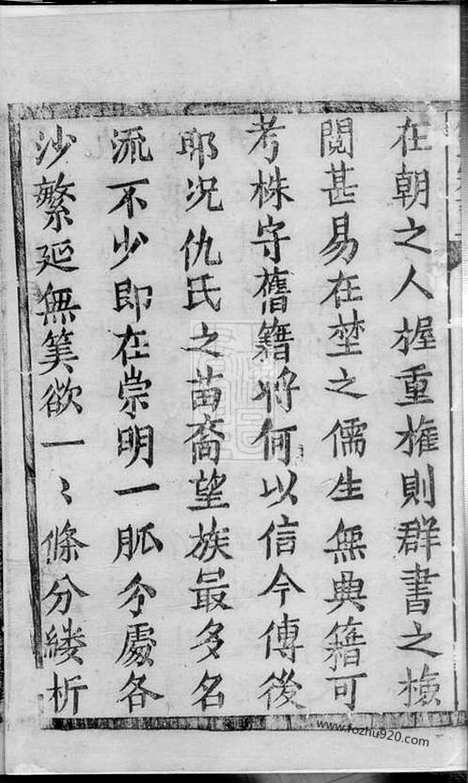 在朝之人握重権則群書之撿
閱甚易在埜之儒生無典籍可
考株守舊籍將何以信今傳後
耶况仇氏之苗裔望族最多名
流不少即在崇明一脈分處各
沙繁延無筭欲一〻條分縷析
www.fozhu920.com